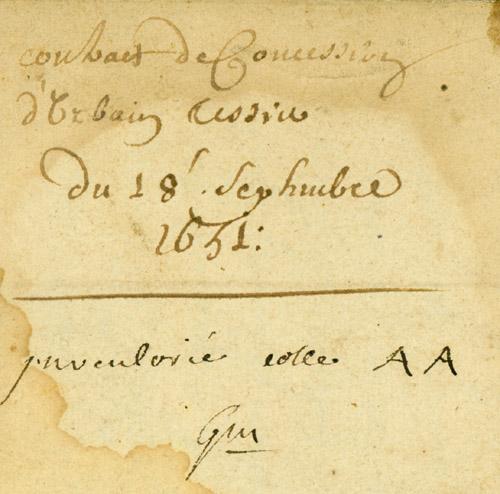 contract de Concession
d'Urbain Tessier
du 18e Septembre
1651:
inventorié cotte AA